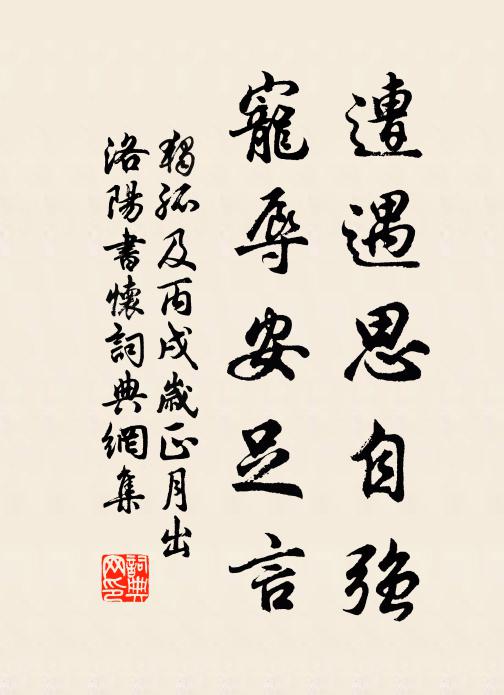 遭遇思自強
寵辱安足言
獨孤及丙戌歲正月出
洛陽書懷詞典網集
詞典
网印